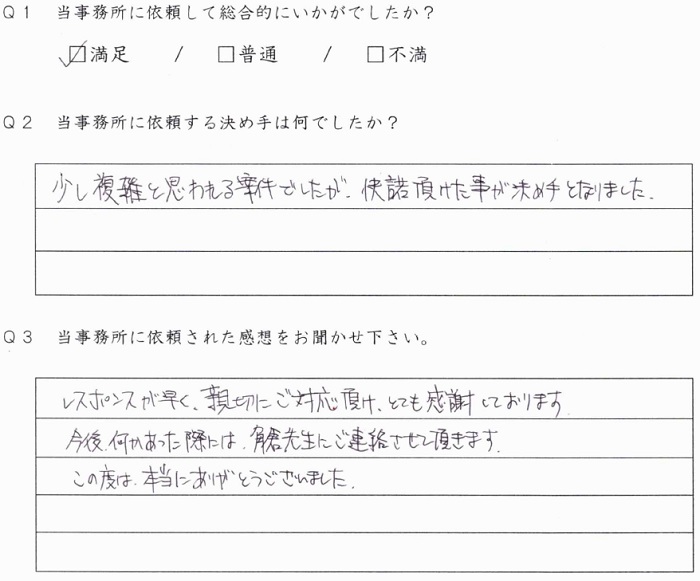 Q1 当事務所に依頼して総合的にいかがでしたか？
☑満足 / □普通 / □不満
Q2 当事務所に依頼する決め手は何でしたか？
少し複雑と思われる案件でしたが、快諾頂けた事が決め手となりました。
Q3 当事務所に依頼された感想をお聞かせ下さい。
レスポンスが早く、親切にご対応頂け、とても感謝しております。
今後、何かあった際には、角倉先生にご連絡させて頂きます。
この度は、本当にありがとうございました。